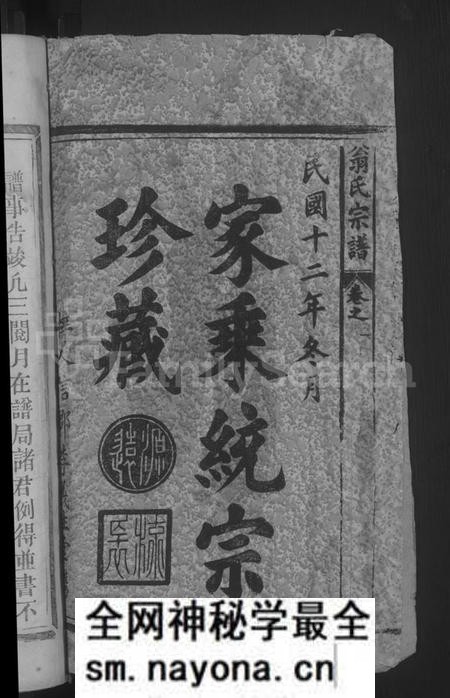 翁氏宗譜
卷之
民國十二年冬月
家乘統宗
珍藏
源遠
流長
譜事告竣凡三閱月在譜局諸君例得並書不
FamilySearch
全网神秘学最全
sm.nayona.cn